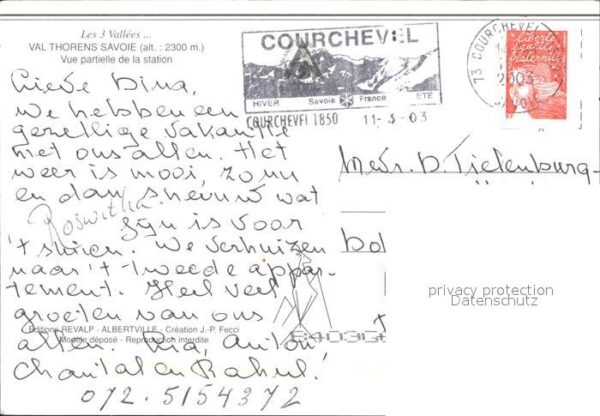 Les 3 Vallées ...
VAL THORENS SAVOIE (alt. : 2300 m.)
Vue partielle de la station
Lieve Dina,
We hebben een
gezellige vakantie
met ons allen. Het
weer is mooi, zo nu
en dan sneeuw wat
fijn is voor
Roswitha
't skieën. We verhuizen
naar 't tweede appar-
tement. Heel veel
groeten van ons
allen. Ria, Anton
Chantal en Rahul!
072.5154372
Editions REVALP - ALBERTVILLE - Création J.-P. Fecci
Modèle déposé - Reproduction interdite
COURCHEVEL
HIVER Savoie France ETE
COURCHEVEL 1850 11-3-03
73 COURCHEVEL
2003
SAVOIE
liberté
égalité
fraternité
Mevr. D. Tielenburg-
privacy protection
Datenschutz